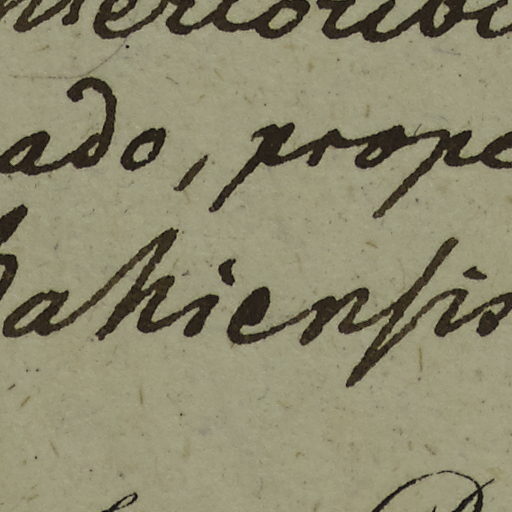 nterioribu
ado, prope
bahiensis